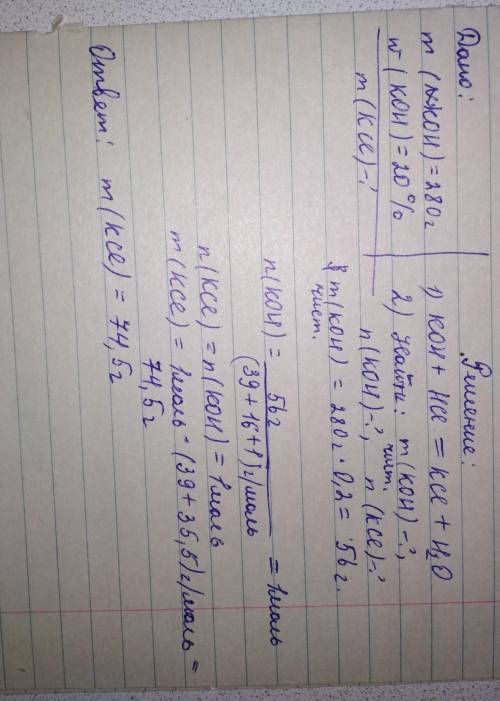 Дано:
m(р-KOH) = 280 г
w(KOH) = 20%
m(KCl) - ?
Решение:
1) KOH + HCl = KCl + H₂O
2) Найти: m(KOH) - ?,
чист.
n(KOH) - ?, n(KCl) - ?
m(KOH) = 280 г · 0,2 = 56 г.
чист.
n(KOH) = 56 г / (39 + 16 + 1) г/моль = 1 моль
n(KCl) = n(KOH) = 1 моль
m(KCl) = 1 моль · (39 + 35,5) г/моль =
74,5 г
Ответ: m(KCl) = 74,5 г